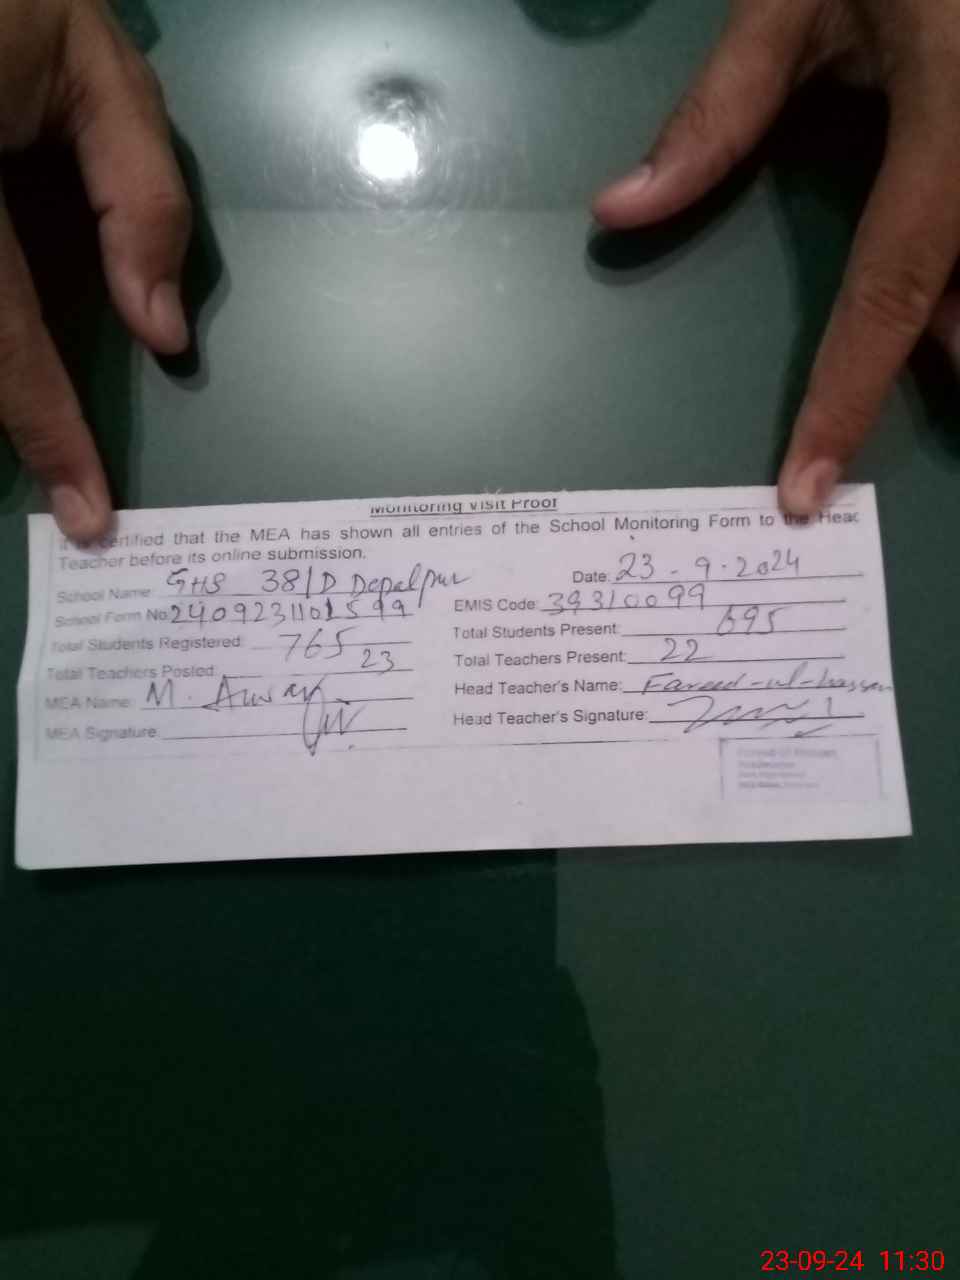 Monitoring Visit Proof
It is certified that the MEA has shown all entries of the School Monitoring Form to the Head
Teacher before its online submission.
School Name: GHS 38/D Depalpur Date: 23-9-2024
School Form No: 2409231101599 EMIS Code: 39310099
Total Students Registered: 765 Total Students Present: 695
Total Teachers Posted: 23 Total Teachers Present: 22
MEA Name: M. Head Teacher's Name: Fareed-ul-hassan
MEA Signature: Head Teacher's Signature:
23-09-24 11:30